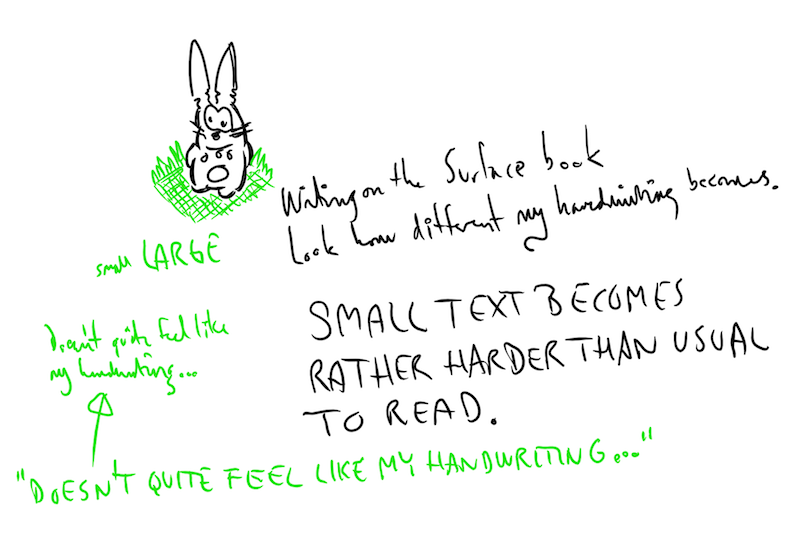 Writing on the Surface book
Look how different my handwriting becomes.
small LARGE
SMALL TEXT BECOMES
RATHER HARDER THAN USUAL
TO READ.
Doesn't quite feel like
my handwriting...
"DOESN'T QUITE FEEL LIKE MY HANDWRITING..."